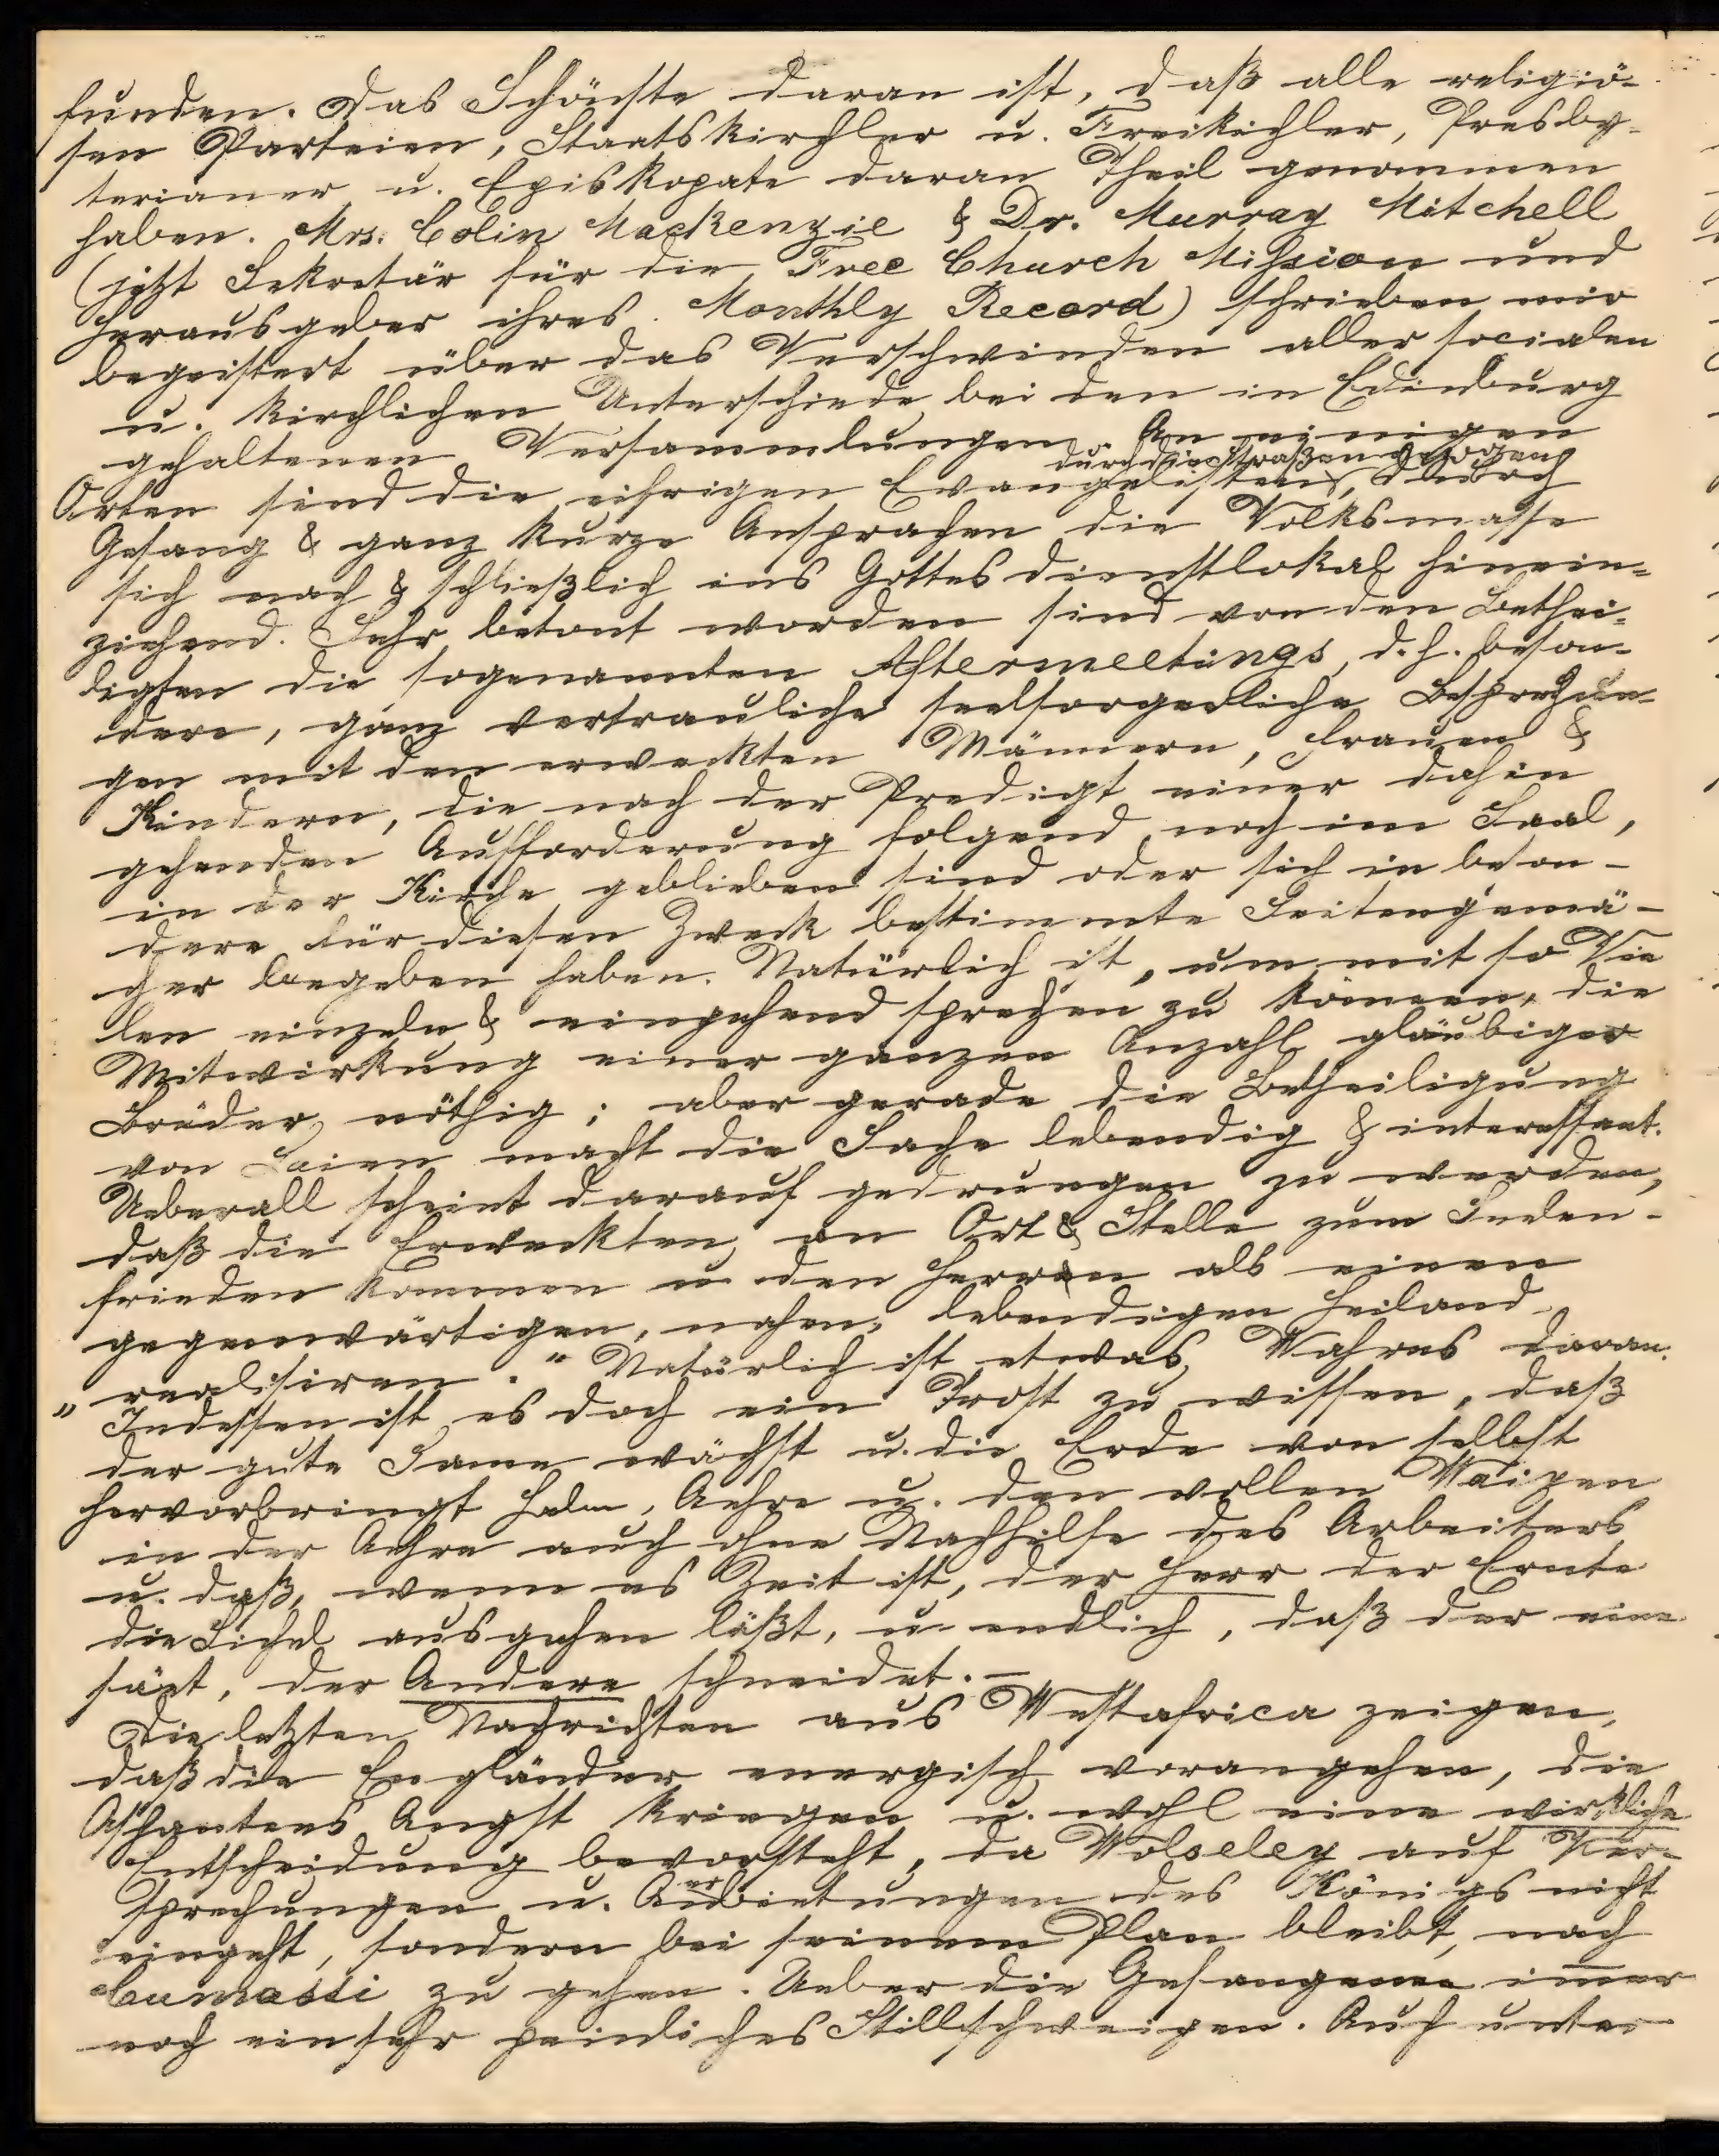 funden. Das Schönste daran ist, daß alle religiö-
sen Parteien, Staatskirchler u. Freikichler, Presby-
terianer u. Episkopate daran Theil genommen
haben. Mrs. Colin Mackenzie & Dr. Murray Mitchell
(jetzt Sekretär für die Free Church Mission und
Herausgeber ihres Monthly Record) schrieben mir
begeistert über das Verschwinden aller socialen
u. kirchlichen Unterschiede bei den in Edinburg
gehaltenen Versammlungen. An einigen
durch die Straßen gezogen
Orten sind die eifrigen Evangelisten, durch
Gesang & ganz kurze Ansprachen die Volksmasse
sich nach & schließlich ins Gottesdienstlokal hinein-
ziehend. Sehr betont worden sind von den Bethei-
ligten die sogenannten Aftermeetings, d. h. beson-
dere, ganz vertrauliche seelsorgerliche Besprechun-
gen mit den erweckten Männern, Frauen &
Kindern, die nach der Predigt einer dahin
gehenden Aufforderung folgend noch im Saal,
in der Kirche geblieben sind oder sich in beson-
dere für diesen Zweck bestimmte Seitengemä-
cher begeben haben. Natürlich ist, um mit so Vie
len einzeln & eingehend sprechen zu können, die
Mitwirkung einer ganzen Anzahl gläubiger
Brüder nöthig; aber gerade die Betheiligung
von Laien macht die Sache lebendig & interessant.
Ueberall scheint darauf gedrungen zu werden,
daß die Erweckten an Ort & Stelle zum Seelen-
frieden kommen u. den Herrn als einen
gegenwärtigen, nahen, lebendigen Heiland
„realisiren." Natürlich ist etwas Wahres daran.
Indessen ist es doch ein Trost zu wissen, daß
der gute Same wächst u. die Erde von selbst
hervorbringt Halm, Aehre u. den vollen Waizen
in der Aehre auch ohne Nachhilfe des Arbeiters
u. daß, wenn es Zeit ist, der Herr der Ernte
die Sichel ausgehen läßt, u. endlich, daß der eine
säet, der Andere schneidet. —
Die letzten Nachrichten aus Westafrica zeigen,
daß die Engländer energisch vorangehen, die
Ashantees Angst kriegen u. wohl eine wirkliche
Entscheidung bevorsteht, da Wolseley auf Ver-
sprechungen u. Anerbietungen des Königs nicht
eingeht, sondern bei seinem Plan bleibt, nach
Cumassi zu gehen. Ueber die Gefangenen immer
noch ein sehr peinliches Stillschweigen. Auch unter